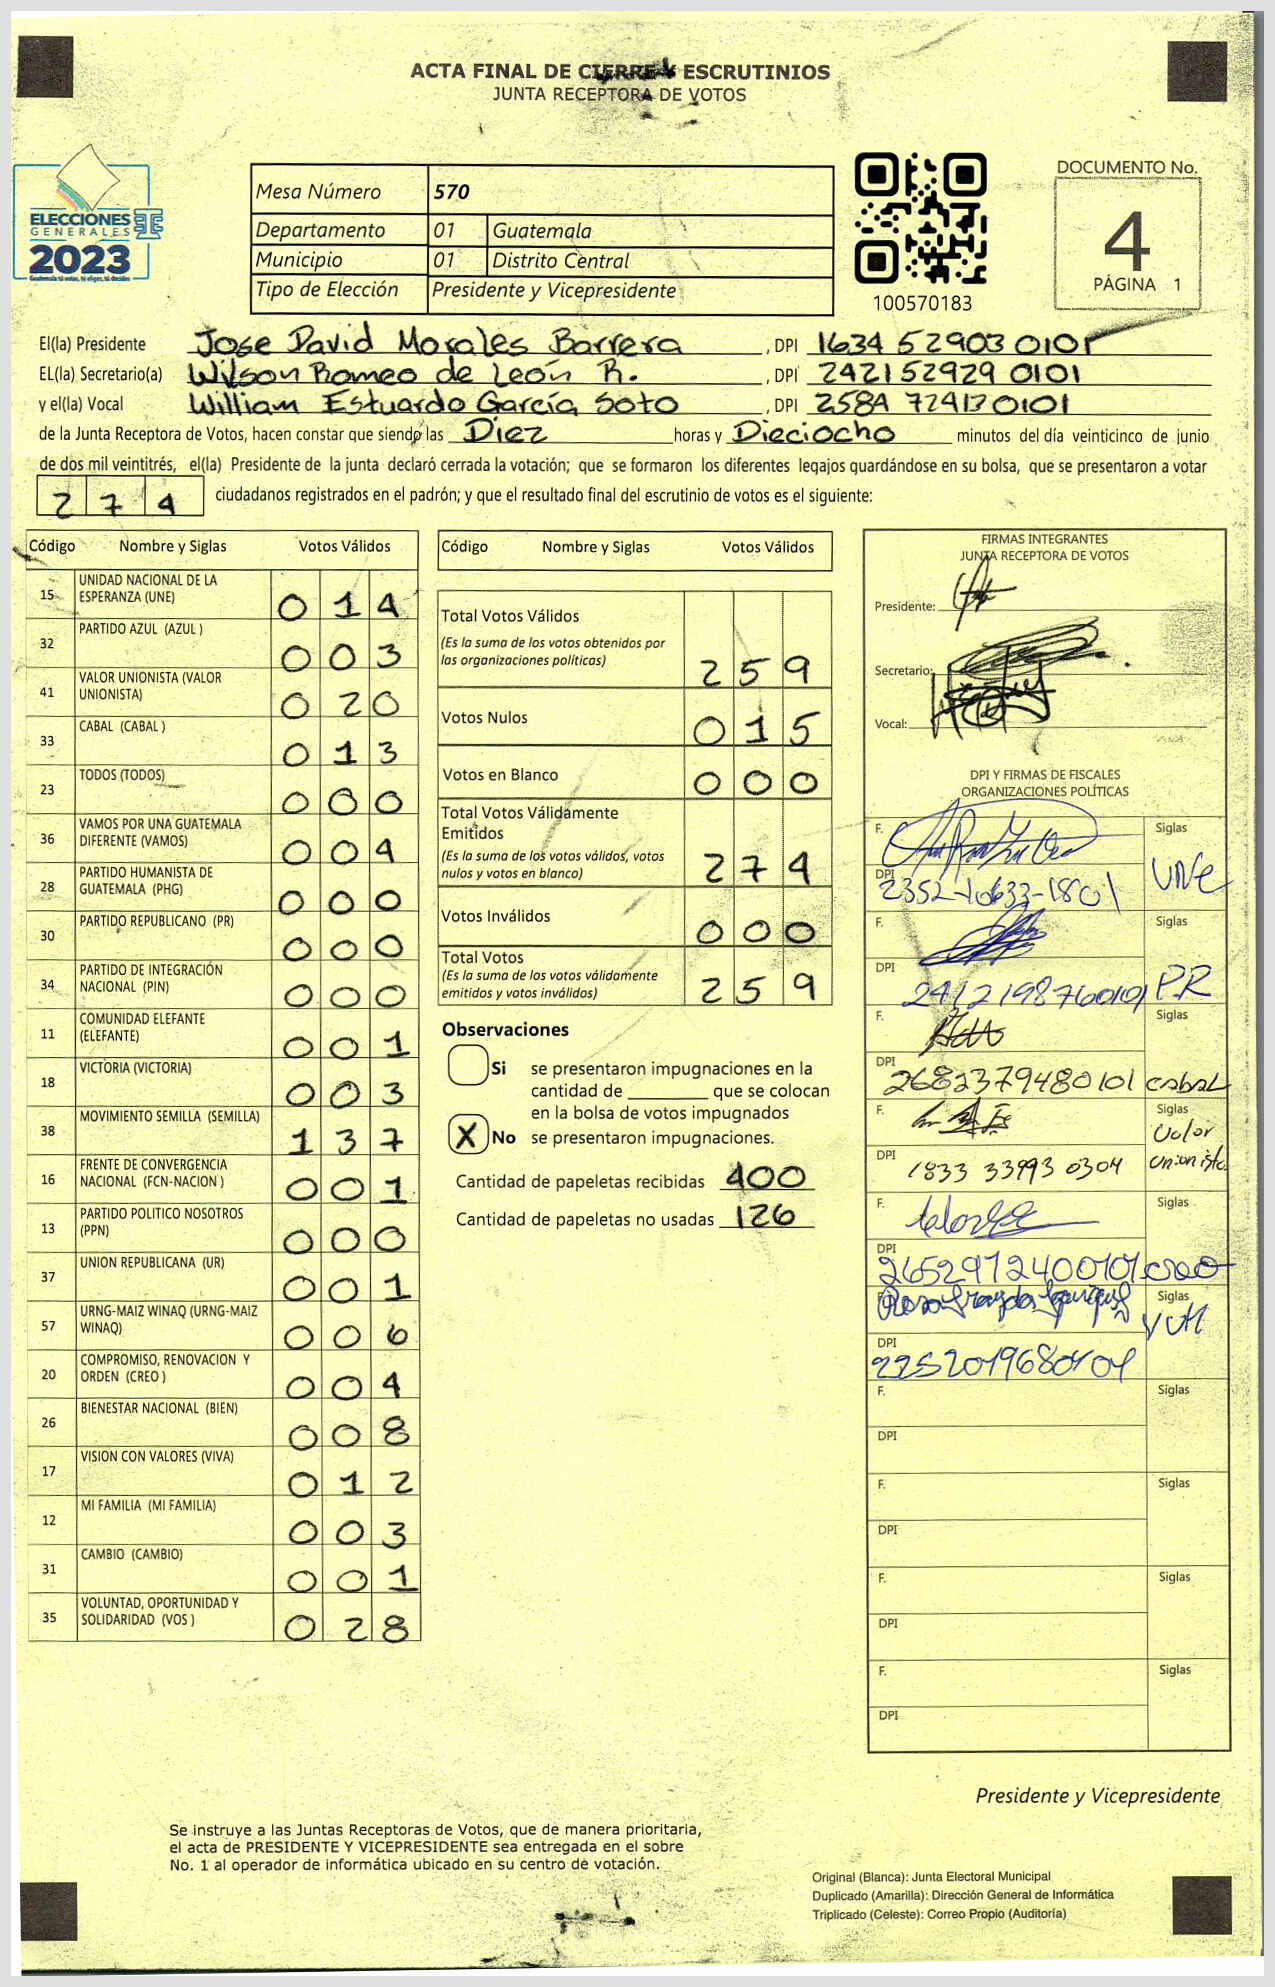 ACTA FINAL DE CIERRE Y ESCRUTINIOS
JUNTA RECEPTORA DE VOTOS
ELECCIONES
GENERALES
2023
Guatemala tú votas, tú eliges, tú decides
Mesa Número 570
Departamento 01 Guatemala
Municipio 01 Distrito Central
Tipo de Elección Presidente y Vicepresidente
100570183
DOCUMENTO No.
4
PÁGINA 1
El(la) Presidente Jose David Morales Barrera , DPI 1634 52903 0101
EL(la) Secretario(a) Wilson Romeo de León R. , DPI 242152929 0101
y el(la) Vocal William Estuardo García Soto , DPI 2584 72417 0101
de la Junta Receptora de Votos, hacen constar que siendo las Diez horas y Dieciocho minutos del día veinticinco de junio
de dos mil veintitrés, el(la) Presidente de la junta declaró cerrada la votación; que se formaron los diferentes legajos guardándose en su bolsa, que se presentaron a votar
274 ciudadanos registrados en el padrón; y que el resultado final del escrutinio de votos es el siguiente:
Código Nombre y Siglas Votos Válidos
15 UNIDAD NACIONAL DE LA ESPERANZA (UNE) 014
32 PARTIDO AZUL (AZUL ) 003
41 VALOR UNIONISTA (VALOR UNIONISTA) 020
33 CABAL (CABAL ) 013
23 TODOS (TODOS) 000
36 VAMOS POR UNA GUATEMALA DIFERENTE (VAMOS) 004
28 PARTIDO HUMANISTA DE GUATEMALA (PHG) 000
30 PARTIDO REPUBLICANO (PR) 000
34 PARTIDO DE INTEGRACIÓN NACIONAL (PIN) 000
11 COMUNIDAD ELEFANTE (ELEFANTE) 001
18 VICTORIA (VICTORIA) 003
38 MOVIMIENTO SEMILLA (SEMILLA) 137
16 FRENTE DE CONVERGENCIA NACIONAL (FCN-NACION ) 001
13 PARTIDO POLITICO NOSOTROS (PPN) 000
37 UNION REPUBLICANA (UR) 001
57 URNG-MAIZ WINAQ (URNG-MAIZ WINAQ) 006
20 COMPROMISO, RENOVACION Y ORDEN (CREO ) 004
26 BIENESTAR NACIONAL (BIEN) 008
17 VISION CON VALORES (VIVA) 012
12 MI FAMILIA (MI FAMILIA) 003
31 CAMBIO (CAMBIO) 001
35 VOLUNTAD, OPORTUNIDAD Y SOLIDARIDAD (VOS ) 028
Código Nombre y Siglas Votos Válidos
Total Votos Válidos
(Es la suma de los votos obtenidos por
las organizaciones políticas) 259
Votos Nulos 015
Votos en Blanco 000
Total Votos Válidamente
Emitidos
(Es la suma de los votos válidos, votos
nulos y votos en blanco) 274
Votos Inválidos 000
Total Votos
(Es la suma de los votos válidamente
emitidos y votos inválidos) 259
Observaciones
Si se presentaron impugnaciones en la
cantidad de ________ que se colocan
en la bolsa de votos impugnados
X No se presentaron impugnaciones.
Cantidad de papeletas recibidas 400
Cantidad de papeletas no usadas 126
FIRMAS INTEGRANTES
JUNTA RECEPTORA DE VOTOS
Presidente:
Secretario:
Vocal:
DPI Y FIRMAS DE FISCALES
ORGANIZACIONES POLÍTICAS
F. Siglas
DPI 2352-10633-1801 UNE
F. Siglas
DPI 2412198760101 PR
F. Siglas
DPI 2682379480101 cabal
F. Siglas
Valor
DPI 1833 33993 0304 Unionista
F. Siglas
DPI 2652972400101 creo
Siglas
DPI 2252019680101
F. Siglas
DPI
F. Siglas
DPI
F. Siglas
DPI
F. Siglas
DPI
Presidente y Vicepresidente
Se instruye a las Juntas Receptoras de Votos, que de manera prioritaria,
el acta de PRESIDENTE Y VICEPRESIDENTE sea entregada en el sobre
No. 1 al operador de informática ubicado en su centro de votación.
Original (Blanca): Junta Electoral Municipal
Duplicado (Amarilla): Dirección General de Informática
Triplicado (Celeste): Correo Propio (Auditoría)